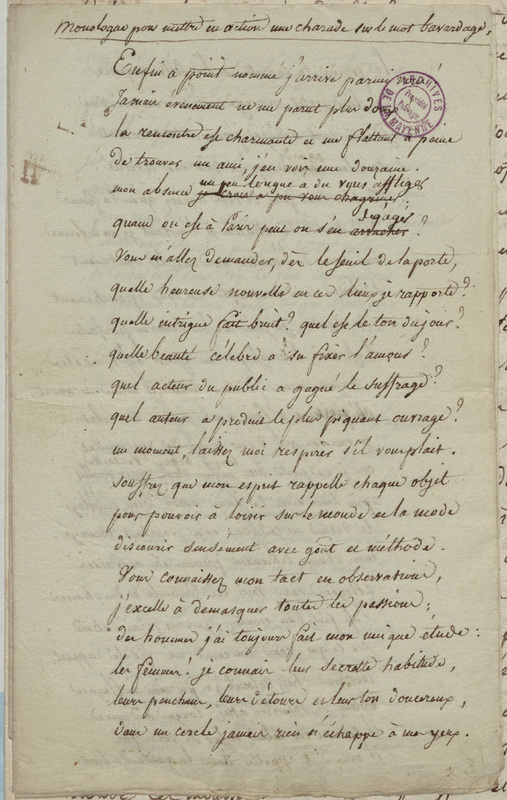 Monologue pour mettre en action une charade sur le mot bavardage.
Enfin à point nommé j'arrive parmi vous!
Jamais evenement ne me parut plus doux
la rencontre est charmante et me flattant à peine
de trouver un ami, j'en vois une douzaine.
un peu longue a du vous affliger
mon absence je crois a pu vous chagriner;
dégager
quand on est à Paris peut on s'en arracher?
Vous m'allez demander, dès le seuil de la porte,
quelle heureuse nouvelle en ces lieux je rapporte?
quelle intrigue fait bruit? quel est le ton du jour?
quelle beauté célebre a su fixer l'amour?
quel acteur du public a gagné le suffrage?
quel auteur a produit le plus piquant ouvrage?
un moment, laissez moi respirer s'il vous plait.
souffrez que mon esprit rappelle chaque objet
pour pouvoir à loisir sur le monde et la mode
discourir sensément avec goût et méthode.
Vous connaissez mon tact en observations,
j'excelle à démasquer toutes les passions;
des hommes j'ai toujours fait mon unique étude:
les femmes! je connais leur secrette habitude,
leurs penchans, leurs détours et leur ton doucereux,
dans un cercle jamais rien n'échappe à mes yeux.
ARCHIVES DE LA MAYENNE
Propriété Publique